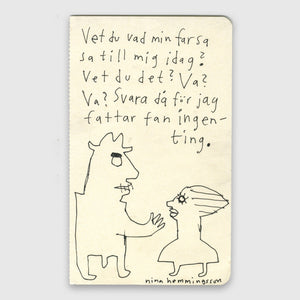 Vet du vad min farsa
sa till mig idag?
Vet du det? Va?
Va? Svara då för jag
fattar fan ingen-
ting.
nina hemmingsson